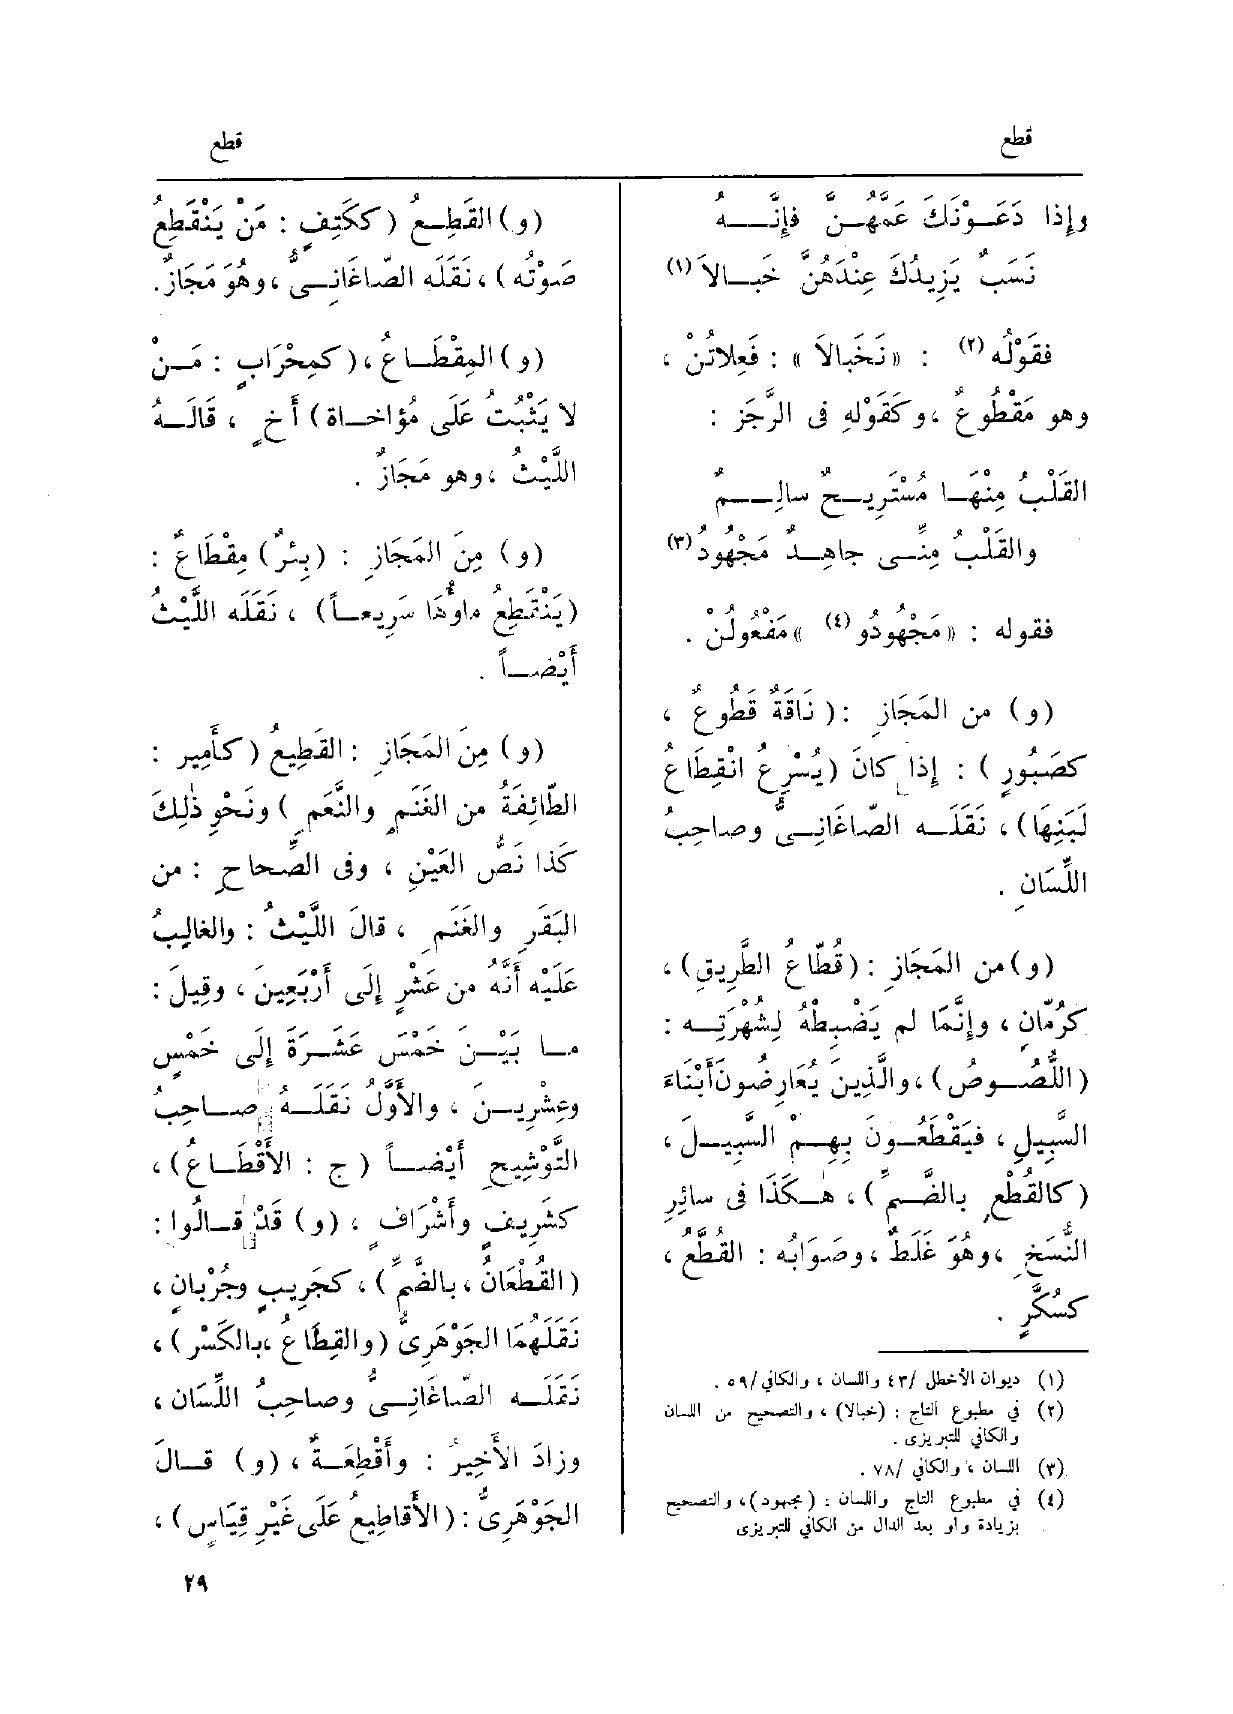 قطع
قطع
وإذا دَعَــوْنَكَ عَمَّهُــنَّ فإِنَّــــهُ
نَسَبٌ يَزِيدُكَ عِنْدَهُنَّ خَبَــالاَ (١)
فقَوْلُه (٢) : « نَخَبالاَ » : فَعِلاتُنْ ،
وهو مَقْطُوعٌ ، وكَقَوْلِهِ فى الرَّجَزِ :
القَلْبُ مِنْهَــا مُسْتَرِيــحٌ سالِــــمٌ
والقَلْبُ مِنِّــى جاهِــدٌ مَجْهُودُ (٣)
فقوله : « مَجْهُودُو (٤) » مَفْعُولُنْ .
(و) من المَجَازِ : ( نَاقَةٌ قَطُوعٌ ،
كصَبُورٍ ) : إذا كانَ ( يُسْرِعُ انْقِطَاعُ
لَبَنِهَا ) ، نَقَلَــه الصّاغَانِــىُّ وصاحِبُ
اللِّسَانِ .
(و) من المَجَازِ : ( قُطّاعُ الطَّرِيقِ ) ،
كرُمّانٍ ، وإِنَّمَا لم يَضْبِطْهُ لِشُهْرَتِــه :
( اللُّصُــوصُ ) ، والَّذِينَ يُعَارِضُونَ أَبْنَاءَ
السَّبِيلِ ، فيَقْطَعُــونَ بِهِــمْ السَّبِيــلَ ،
( كالقُطْعِ بالضَّــمِّ ) ، هٰــكَذَا فى سائِرِ
النُّسَخِ ، وهُوَ غَلَطٌ ، وصَوَابُه : القُطَّعُ ،
كسُكَّرٍ .
(١) ديوان الأخطل /٤٣ واللسان ، والكافي /٥٩ .
(٢) في مطبوع التاج : (خبالا) ، والتصحيح من اللسان
والكافي للتبريزى .
(٣) اللسان ، والكافي /٧٨ .
(٤) في مطبوع التاج واللسان : (مجهود) ، والتصحيح
بزيادة واو بعد الدال من الكافي للتبريزى
(و) القَطِــعُ ( ككَتِفٍ : مَنْ يَنْقَطِعُ
صَوْتُه ) ، نَقَلَه الصّاغَانِــىُّ ، وهُوَ مَجَازٌ .
(و) المِقْطَــاعُ ، ( كمِحْرَابٍ : مَــنْ
لا يَثْبُتُ عَلَى مُؤاخــاة ) أَخٍ ، قالَــهُ
اللَّيْثُ ، وهو مَجَازٌ .
(و) مِنَ المَجَازِ : ( بِئرٌ ) مِقْطَاعٌ :
( يَنْقَطِعُ ماؤُهَا سَرِيعــاً ) ، نَقَلَه اللَّيْثُ
أَيْضــاً .
(و) مِنَ المَجَازِ : القَطِيعُ ( كأَمِير :
الطّائِفَةُ من الغَنَمِ والنَّعَمِ ) ونَحْوِ ذٰلِكَ
كَذا نَصُّ العَيْنِ ، وفى الصِّحاحِ : من
البَقَرِ والغَنَمِ ، قالَ اللَّيْثُ : والغالِبُ
عَلَيْه أَنَّهُ من عَشْرٍ إِلَى أَرْبَعِينَ ، وقِيلَ :
مــا بَيْــنَ خَمْسَ عَشــرَةَ إِلَى خَمْسٍ
وعِشْرِيــنَ ، والأَوَّلُ نَقَلَــهُ صــاحِبُ
التَّوْشِيحِ أَيْضــاً ( ج : الأَقْطَــاعُ ) ،
كشَرِيفٍ وأَشْرَافٍ ، (و) قَدْ قــالُوا :
( القُطْعَانُ ، بالضَّمِّ ) ، كجَرِيبٍ وجُرْبانٍ ،
نَقَلَهُمَا الجَوْهَرِىُّ ( والقِطَاعُ ، بالكَسْرِ ) ،
نَقَلَــه الصّاغَانِــىُّ وصاحِبُ اللِّسَان ،
وزادَ الأَخِيرُ : وأَقْطِعَــةٌ ، (و) قــالَ
الجَوْهَرِىُّ : ( الأَقاطِيعُ عَلَى غَيْرِ قِيَاسٍ ) ،
٢٩